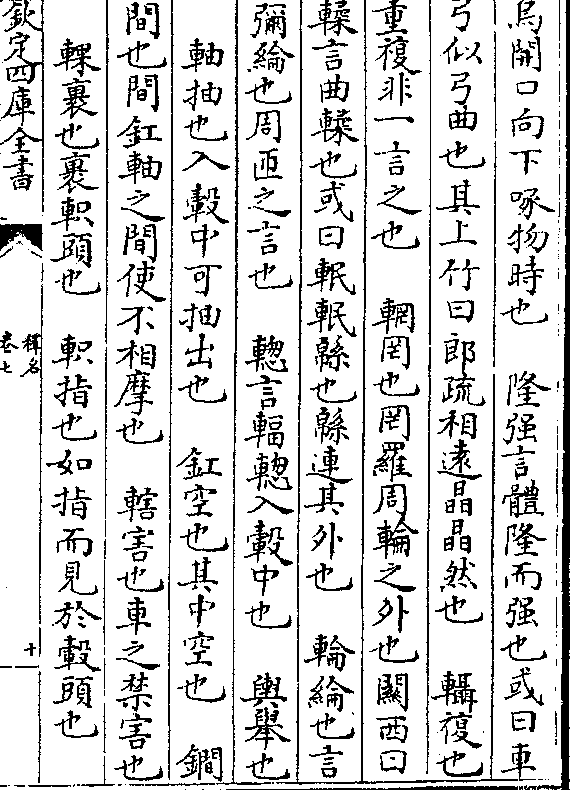 烏開口向下啄物時也　隆强言體隆而强也或曰車
弓似弓曲也其上竹曰郎疏相逺晶晶然也　轗複也
重複非一言之也　輞罔也罔羅周輪之外也關西曰
輮言曲輮也或曰䡑䡑緜也緜連其外也　輪綸也言
彌綸也周匝之言也　轗言輻轗入轂中也　輿舉也
軸抽也入轂中可抽出也　釭空也其中空也　鐧
間也間釭軸之間使不相摩也　轄害也車之禁害也
輠裹也裹軹頭也　軹指也如指而見於轂頭也
欽定四庫全書
釋名
卷七
十